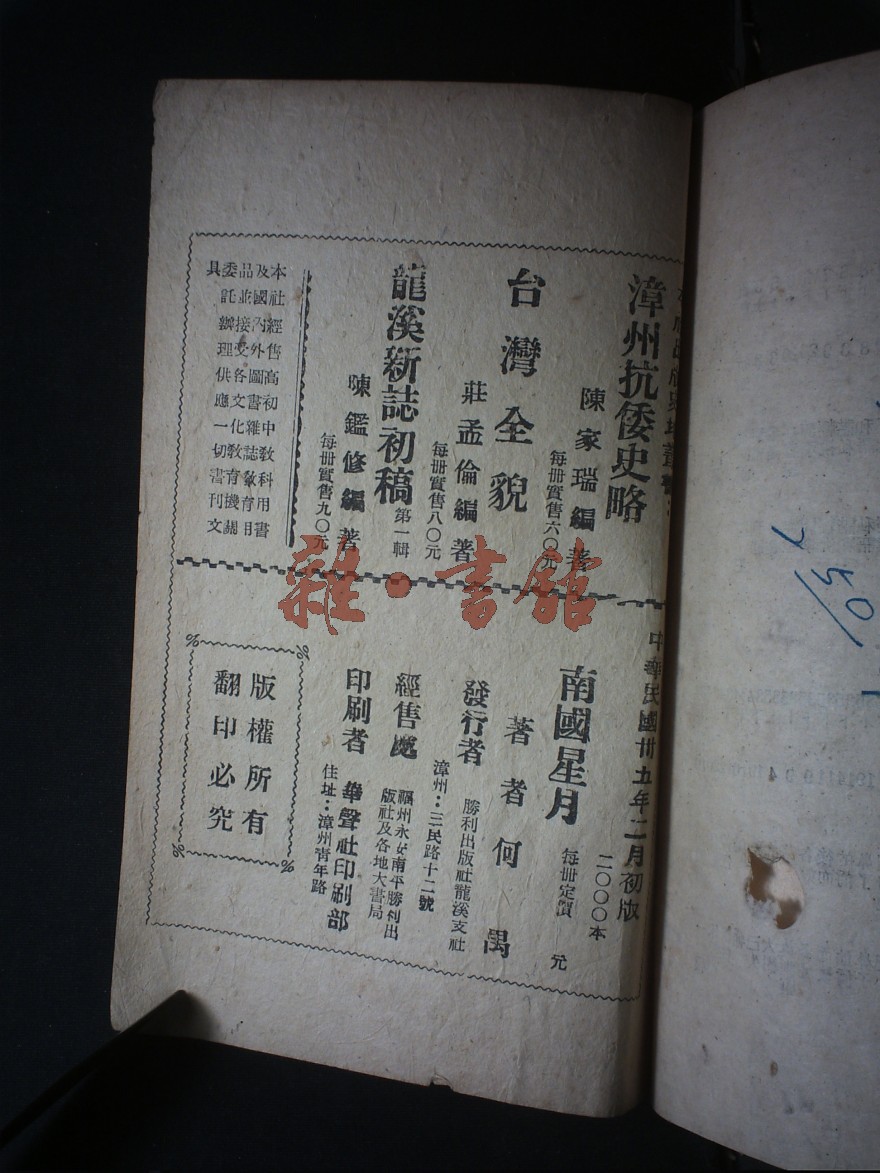 漳州抗倭史略
陳家瑞編著
每冊實售六〇元
台灣全貌
莊孟倫編著
每冊實售八〇元
龍溪新誌初稿 第一輯
陳鑑修編著
每冊實售九〇元
本社經售高初中教科用書
及國內外圖書雜誌敎育用
品並接受各文化教育機關
委託辦理供應一切書刊文
具
中華民國卅五年二月初版
二〇〇〇本
南國星月
每冊定價 元
著者何禺
發行者 勝利出版社龍溪支社
漳州：三民路十二號
經售處 福州永安南平勝利出
版社及各地大書局
印刷者 華聲社印刷部
住址：漳州青年路
版權所有
翻印必究
雜·書館